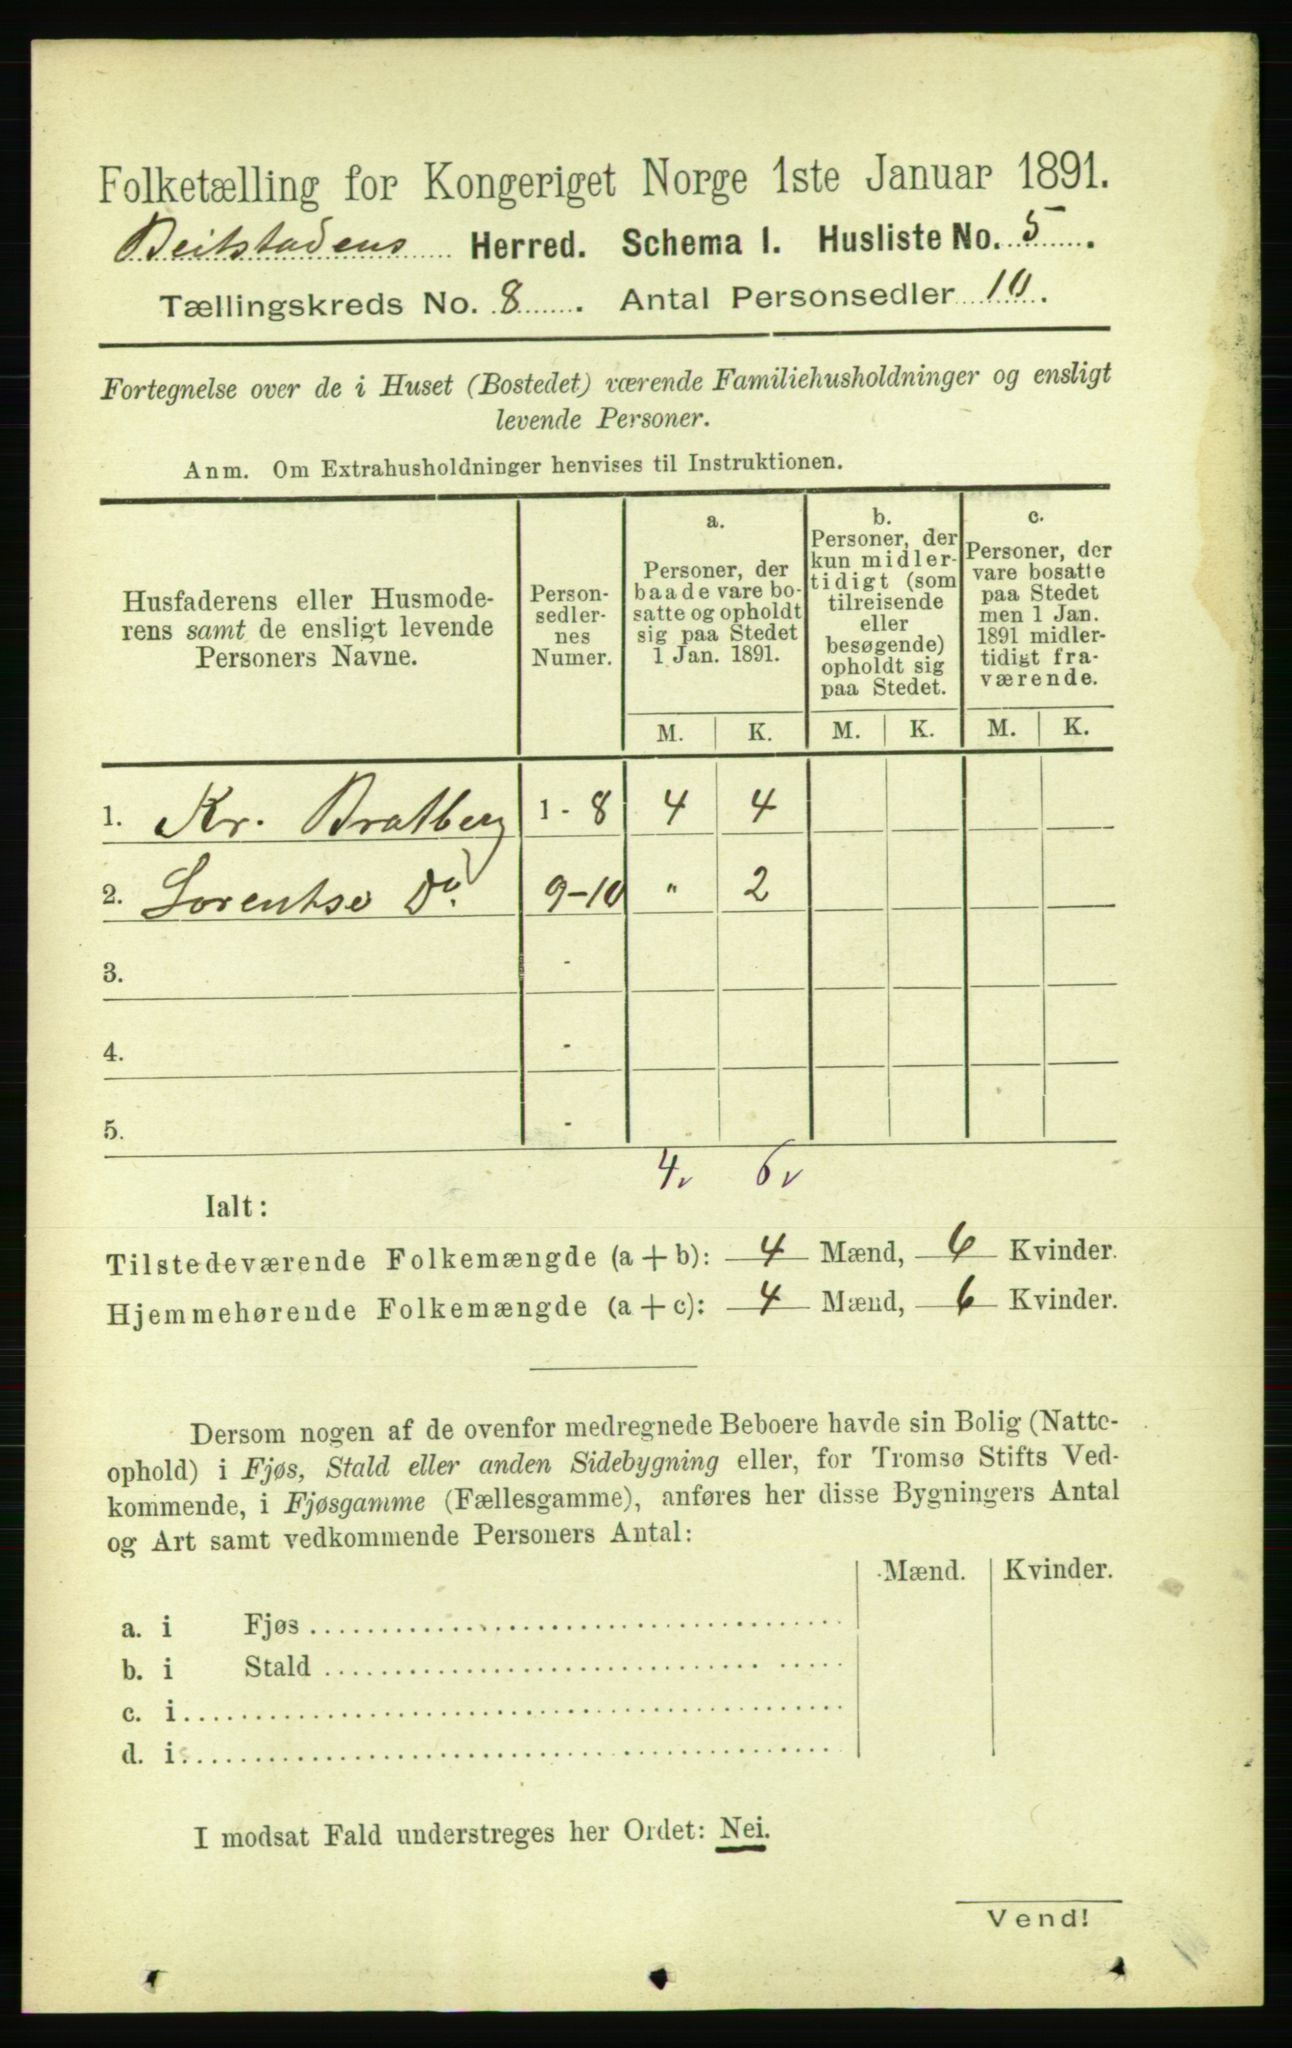 Folketælling for Kongeriget Norge 1ste Januar 1891.
Beitstadens Herred. Schema I. Husliste No. 5.
Tællingskreds No. 8. Antal Personsedler 10.
Fortegnelse over de i Huset (Bostedet) værende Familiehusholdninger og ensligt
levende Personer.
Anm. Om Extrahusholdninger henvises til Instruktionen.
Husfaderens eller Husmode-
rens samt de ensligt levende
Personers Navne.
Person-
sedler-
nes
Numer.
a.
Personer, der
baade vare bo-
satte og opholdt
sig paa Stedet
1 Jan. 1891.
b.
Personer, der
kun midler-
tidigt (som
tilreisende
eller
besøgende)
opholdt sig
paa Stedet.
c.
Personer, der
vare bosatte
paa Stedet
men 1 Jan.
1891 midler-
tidigt fra-
værende.
M. K. M. K. M. K.
1. Kr. Bratberg 1 - 8 4 4
2. Lorentse Do. 9-10 " 2
3. -
4. -
5. -
4v 6v
Ialt:
Tilstedeværende Folkemængde (a + b): 4 Mænd, 6 Kvinder.
Hjemmehørende Folkemængde (a + c): 4 Mænd, 6 Kvinder.
Dersom nogen af de ovenfor medregnede Beboere havde sin Bolig (Natte-
ophold) i Fjøs, Stald eller anden Sidebygning eller, for Tromsø Stifts Ved-
kommende, i Fjøsgamme (Fællesgamme), anføres her disse Bygningers Antal
og Art samt vedkommende Personers Antal:
Mænd. Kvinder.
a. i Fjøs
b. i Stald
c. i
d. i
I modsat Fald understreges her Ordet: Nei.
Vend!